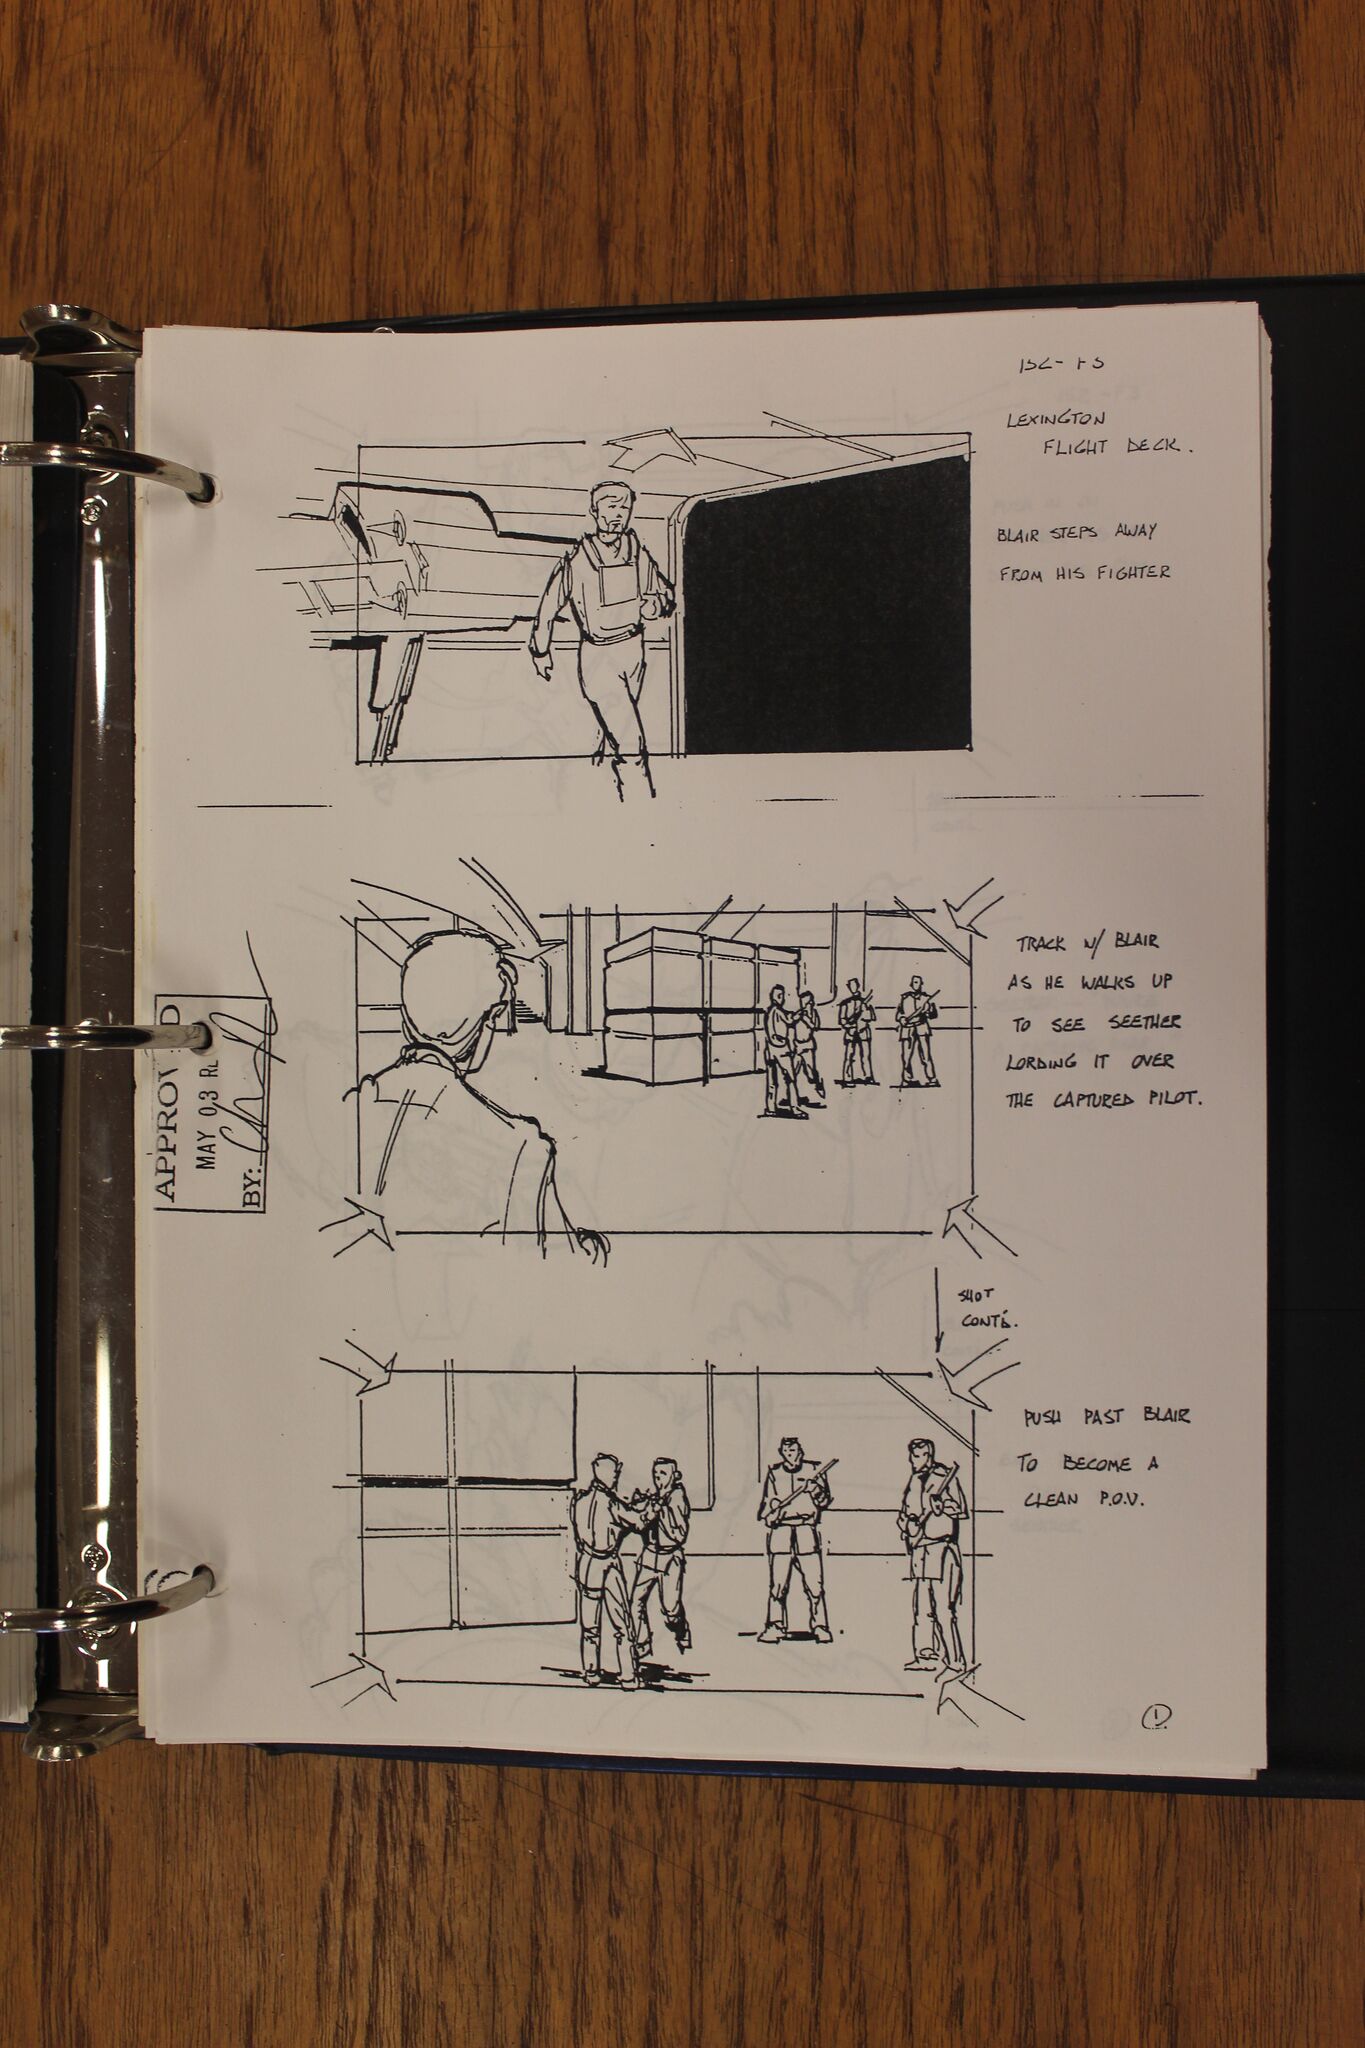 LEXINGTON
FLIGHT DECK.
BLAIR STEPS AWAY
FROM HIS FIGHTER
TRACK W/ BLAIR
AS HE WALKS UP
TO SEE SEETHER
LORDING IT OVER
THE CAPTURED PILOT.
SHOT
CONT'D.
PUSH PAST BLAIR
TO BECOME A
CLEAN P.O.V.
1
MAY 03
BY: